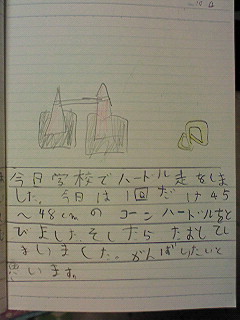 今日学校でハードル走をしま
した。今日は1回だけ45
〜48cmのコーンハードルをと
びました。そしたらたおしてし
まいました。がんばりたいと
思います。